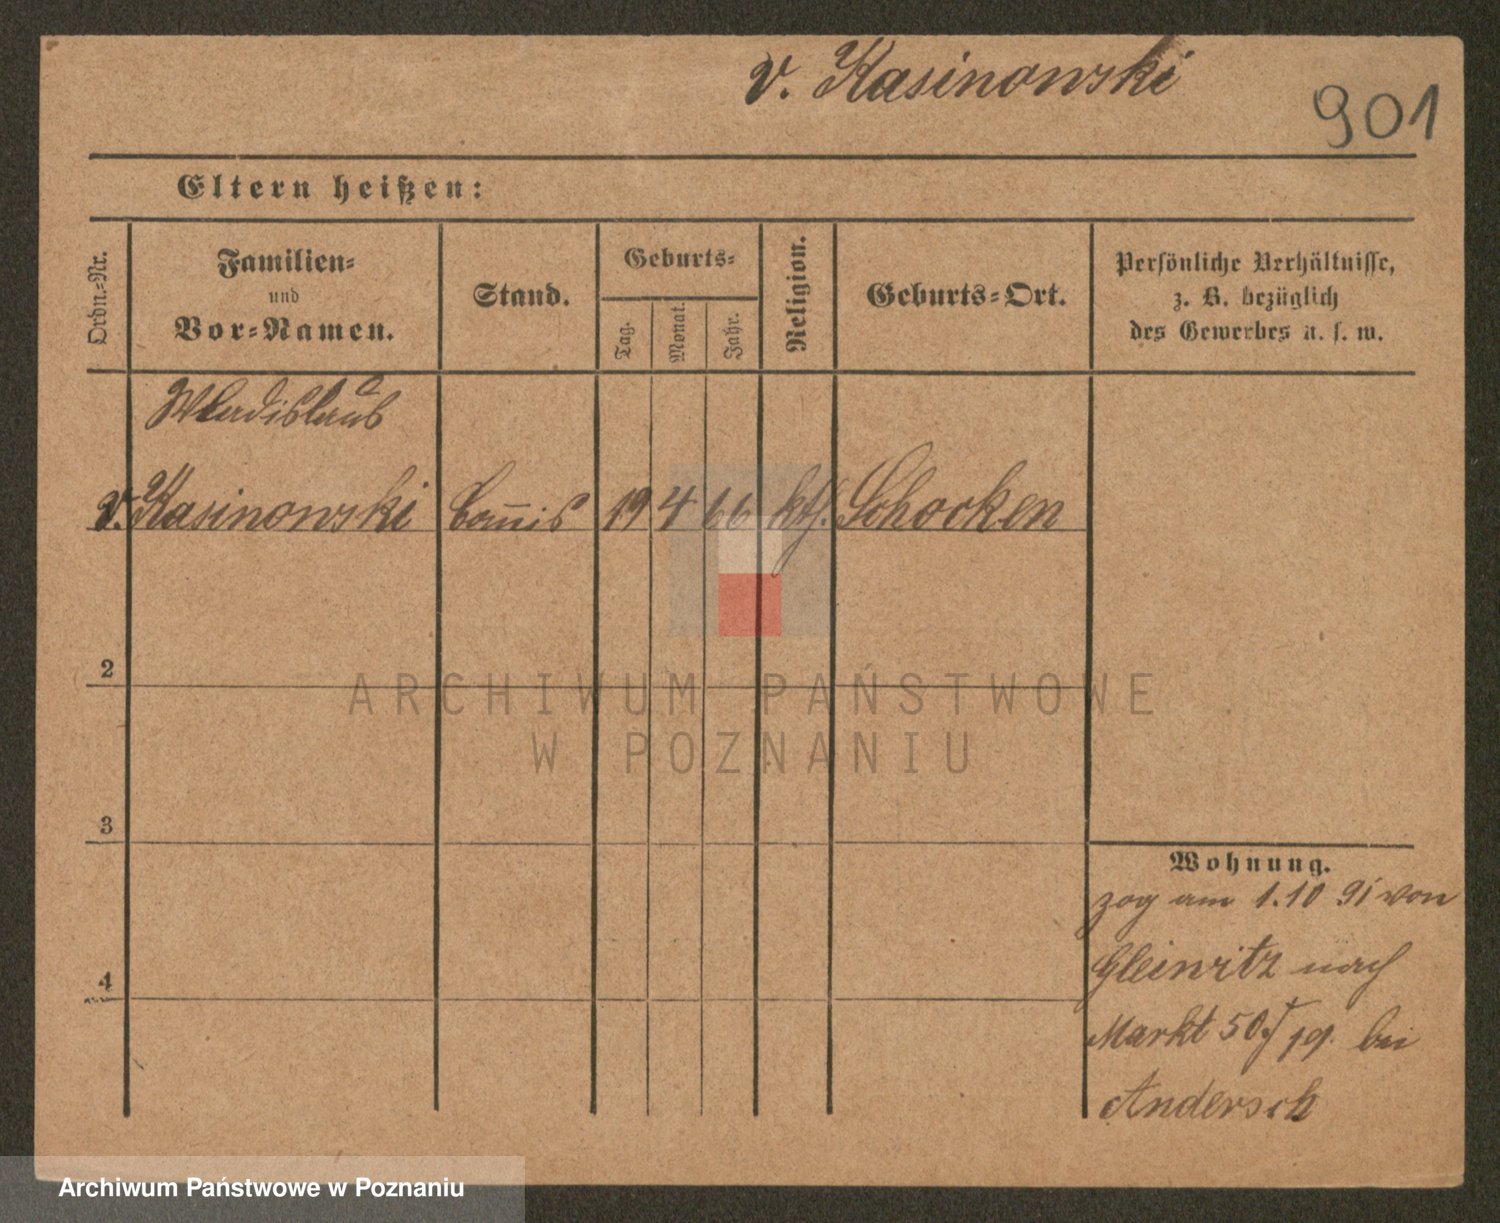 v. Kasinowski
901
Eltern heißen:
Ordn.-Nr.
Familien-
und
Vor-Namen.
Stand.
Geburts-
Tag.
Monat.
Jahr.
Religion.
Geburts-Ort.
Persönliche Verhältnisse,
z. B. bezüglich
des Gewerbes u. s. w.
Wladislaus
v. Kasinowski Com̅is 19 4 66 kth. Schocken
2
3
4
Wohnung.
zog am 1.10 91 von
Gleiwitz nach
Markt 50. bei
Andersch
ARCHIWUM PAŃSTWOWE
W POZNANIU
Archiwum Państwowe w Poznaniu